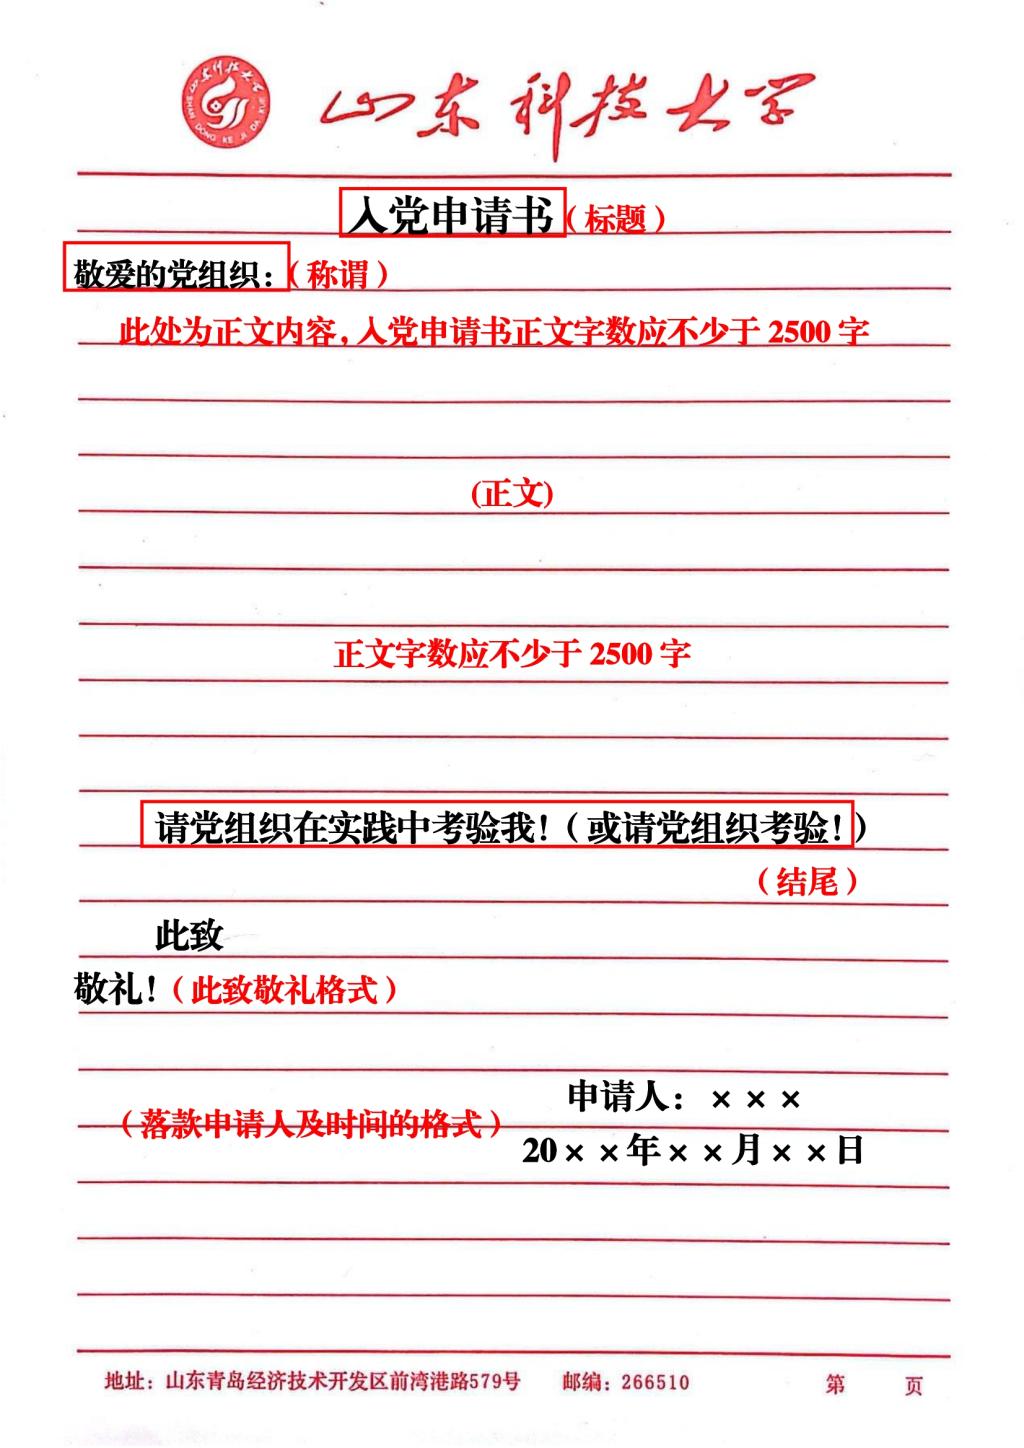 山东科技大学
山东科技大学
SHAN DONG KE JI DA XUE
入党申请书（标题）
敬爱的党组织：（称谓）
此处为正文内容，入党申请书正文字数应不少于 2500 字
(正文)
正文字数应不少于 2500 字
请党组织在实践中考验我！（或请党组织考验！）
（结尾）
此致
敬礼！（此致敬礼格式）
申请人：×××
（落款申请人及时间的格式）
20××年××月××日
地址：山东青岛经济技术开发区前湾港路579号 邮编：266510 第 页